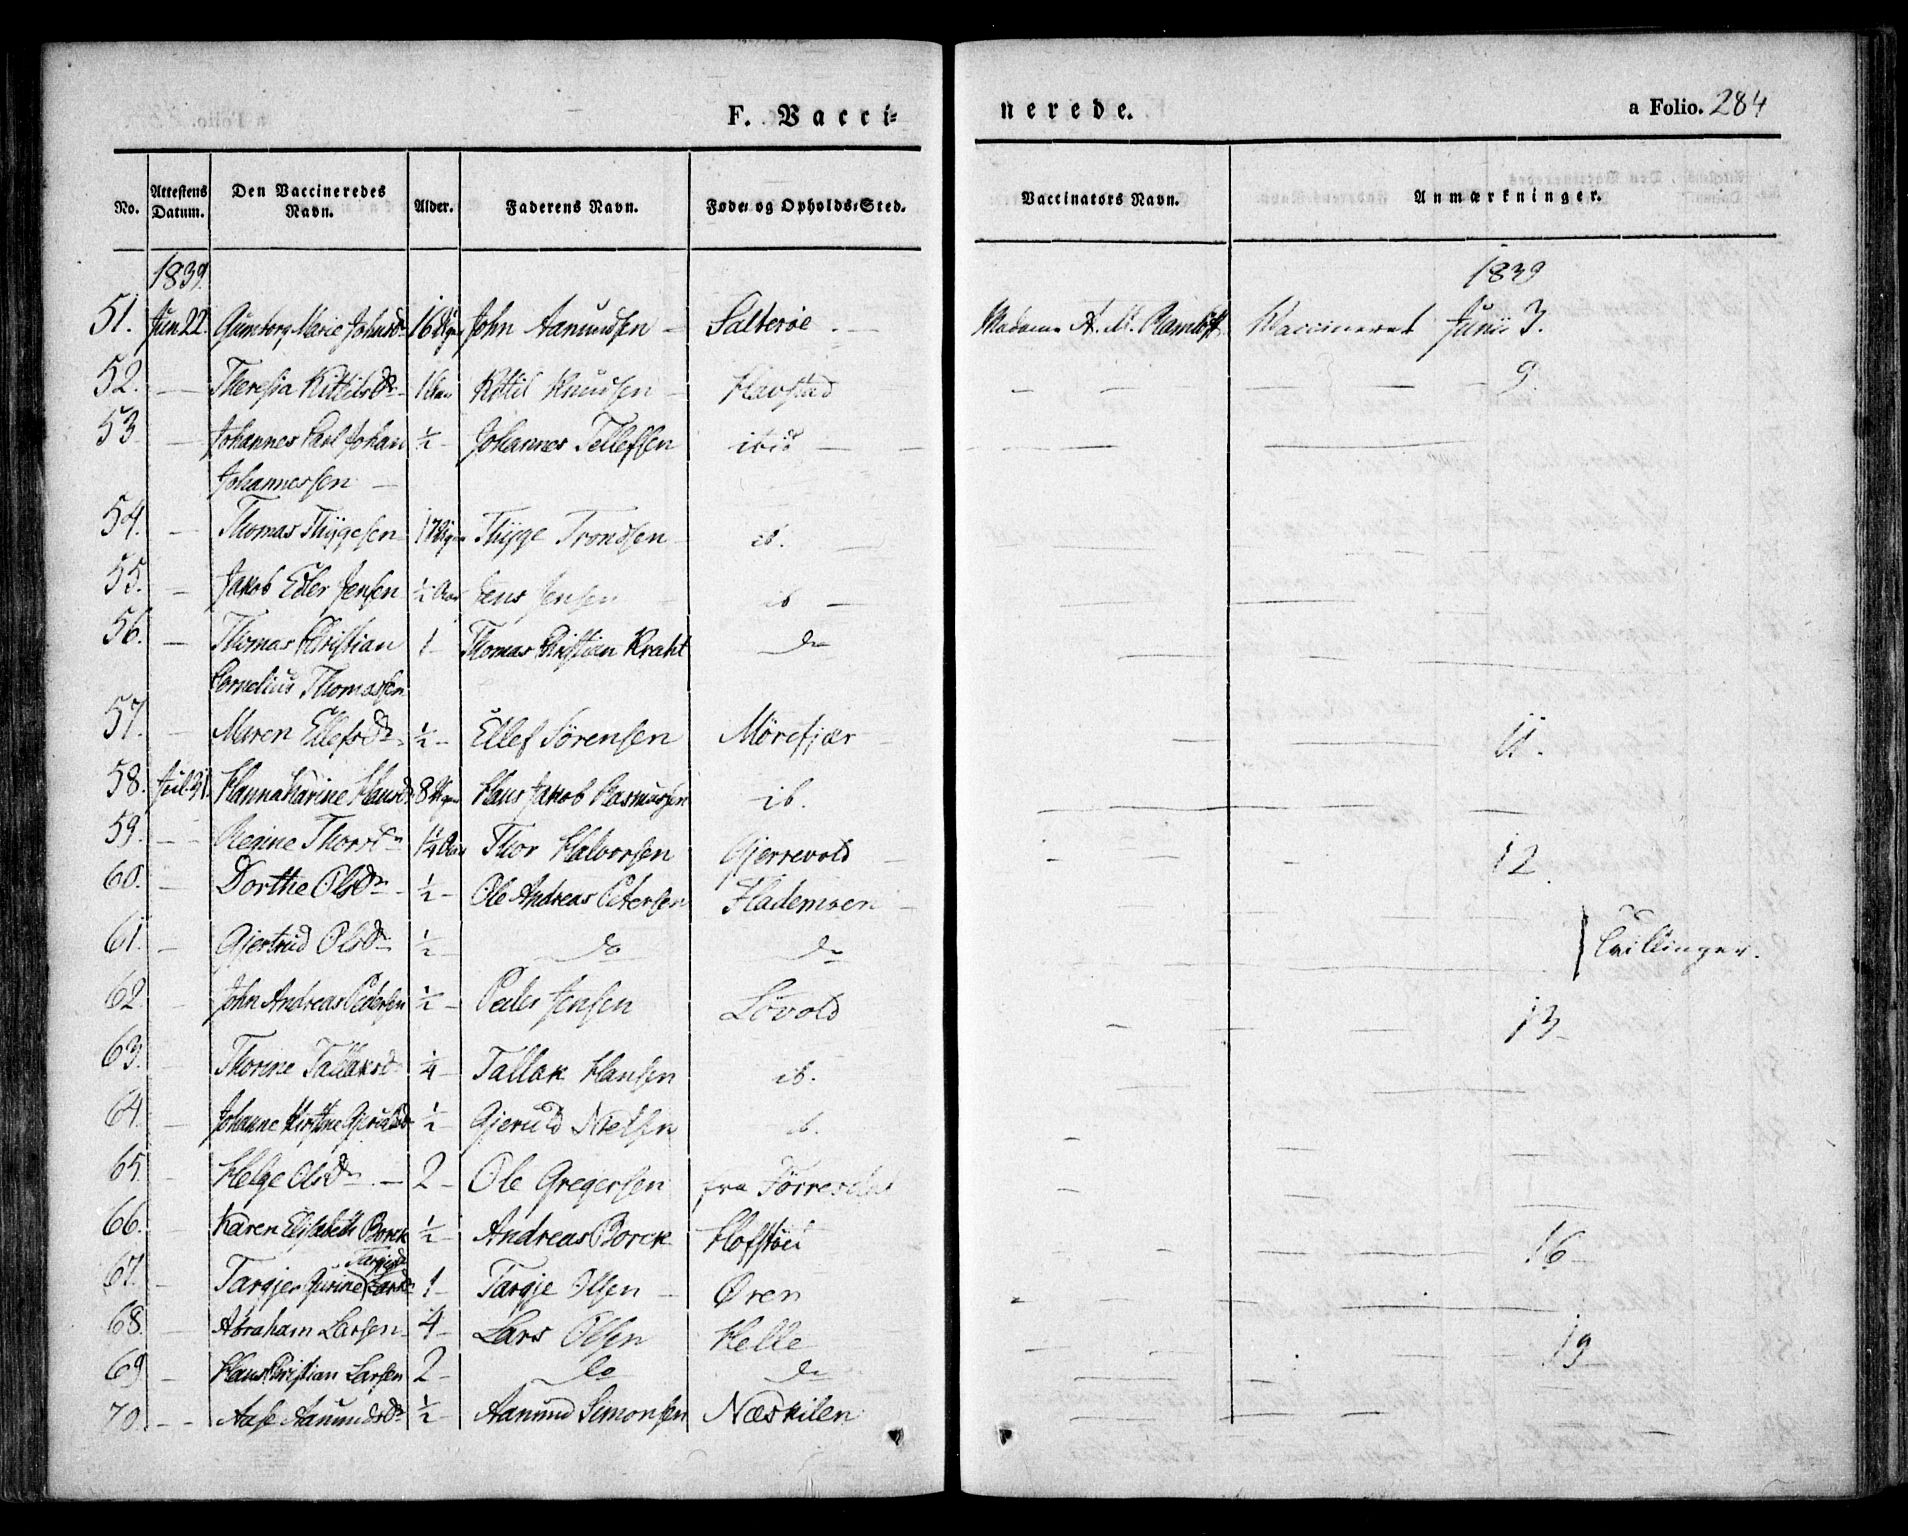 F. Vacci-
nerede.
a Folio. 284
No. Attestens Datum. Den Vaccineredes Navn. Alder. Faderens Navn. Føde- og Opholds-Sted. Vaccinators Navn. Anmærkninger.
1839. 1839
51. Jun 22. Gunborg Marie Johnsdr 16 John Aanundsen - Salterøe - Madame A. M. Vaccineret Junii 3.
52. - Theresia Kittilsdr 1 Aar Kittil Knudsen - Havstad - - - 9.
53 - Johannes Carl Johan ½ - Johannes Tellefsen ibid - -
Johannessen -
54. - Thomas Thygesen 17 Thyge Trondsen ib. - -
55. - Jakob Edler Jensen ½ Aar Jens Jensen ib - - -
56. - Thomas Christian 1 - Thomas Christian Kraht do - -
Cornelius Thomassen
57. - Maren Ellefsdr ½ - Ellef Sørensen Mørefjær - - - 11.
58. Jul. 31. Hanna Karine Hansdr 8 Hans Jakob Rasmussen ib. - -
59. - Regine Thorsdr 1¼ Aar Thor Halvorsen Gjerrevold - - - 12.
60. - Dorthe Olsdr - ½ - Ole Andreas Petersen Flademoen - -
61. - Gjertrud Olsdr ½ - do do - - Tvillinger.
62 - John Andreas Pedersen ½ - Peder Jensen Løvold - - 13
63. - Thorine Tallaksdr ¼ - Tallak Hansen ib. - -
64. - Johanne Kirstine Gjeruldsdr ½ - Gjeruld Nielsen ib. - -
65. - Helge Olsdr - 2 - Ole Gregersen fra - -
66. - Karen Elisabeth Borck ½ - Andreas Borck - - 16 -
Targjesdr
67. - Targjer Gurine Larsdr 1 - Targje Olsen - Øren - -
68. - Abraham Larsen 4 - Lars Olsen Helle - - 19
69 - Hans Christian Larsen 2 - do do - -
70. - - Aase Aanundsdr ½ - Aanund Simonsen Næskilen - -